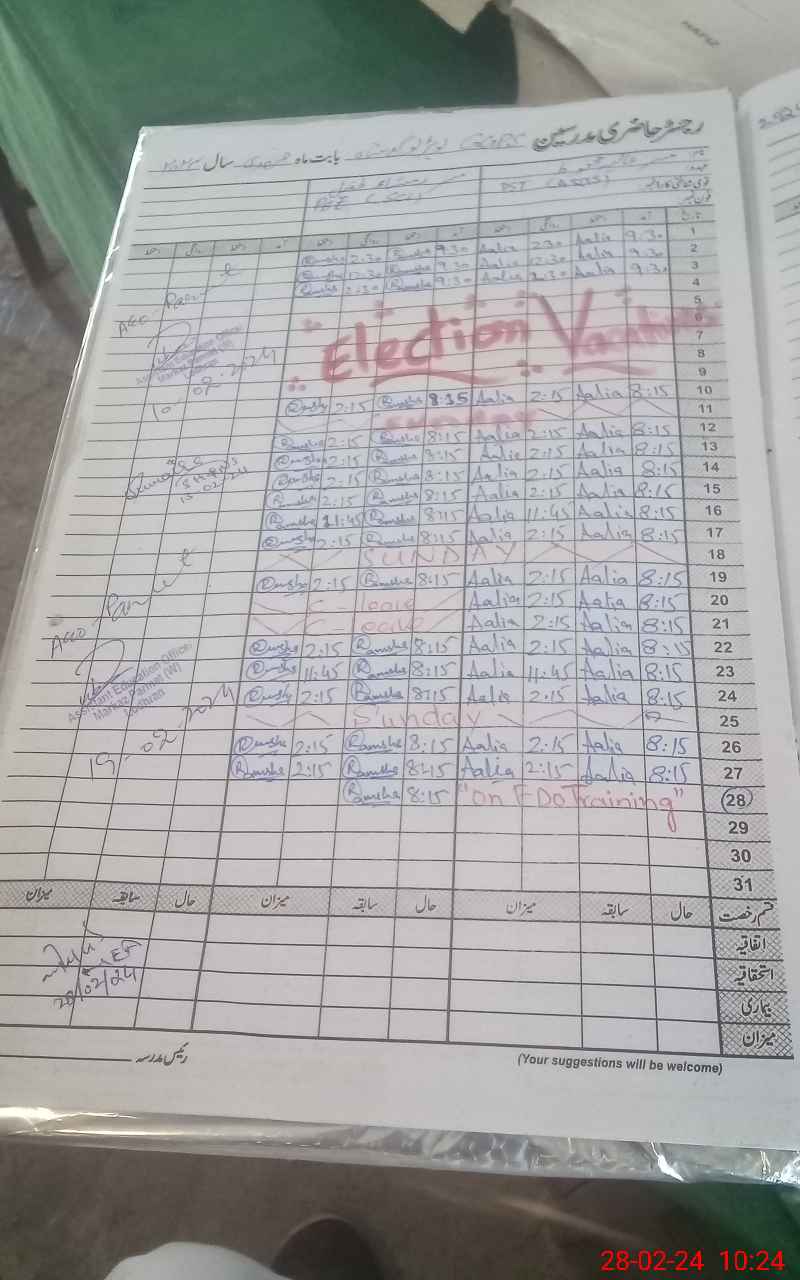 رجسٹر حاضری مدرسین
بابت ماہ فروری سال ۲۰۲۴
PST (ASCIS)
1
Ramsha 2:30 Ramsha 9:30 Aalia 2:30 Aalia 9:30 2
Ramsha 12:30 Ramsha 9:30 Aalia 12:30 Aalia 9:30 3
Ramsha 2:30 Ramsha 9:30 Aalia 2:30 Aalia 9:30 4
5
Election Vacations 6
7
8
9
Ramsha 2:15 Ramsha 8:15 Aalia 2:15 Aalia 8:15 10
SUNDAY 11
Ramsha 2:15 Ramsha 8:15 Aalia 2:15 Aalia 8:15 12
Ramsha 2:15 Ramsha 8:15 Aalia 2:15 Aalia 8:15 13
Ramsha 2:15 Ramsha 8:15 Aalia 2:15 Aalia 8:15 14
Ramsha 2:15 Ramsha 8:15 Aalia 2:15 Aalia 8:15 15
Ramsha 11:45 Ramsha 8:15 Aalia 11:45 Aalia 8:15 16
Ramsha 2:15 Ramsha 8:15 Aalia 2:15 Aalia 8:15 17
SUNDAY 18
Ramsha 2:15 Ramsha 8:15 Aalia 2:15 Aalia 8:15 19
C-leave Aalia 2:15 Aalia 8:15 20
C-leave Aalia 2:15 Aalia 8:15 21
Ramsha 2:15 Ramsha 8:15 Aalia 2:15 Aalia 8:15 22
Ramsha 11:45 Ramsha 8:15 Aalia 11:45 Aalia 8:15 23
Ramsha 2:15 Ramsha 8:15 Aalia 2:15 Aalia 8:15 24
Sunday 25
Ramsha 2:15 Ramsha 8:15 Aalia 2:15 Aalia 8:15 26
Ramsha 2:15 Ramsha 8:15 Aalia 2:15 Aalia 8:15 27
Ramsha 8:15 "On FDO Training" 28
29
30
31
Assistant Education Officer
10-02-2024
15-02-24
Assistant Education Officer
Markaz Parmet (W)
19-02-2024
قسم رخصت حال سابقہ میزان حال سابقہ میزان حال سابقہ میزان
اتفاقیہ
استحقاقیہ
بیماری
میزان
28/02/24
رئیس مدرسہ
(Your suggestions will be welcome)
28-02-24 10:24